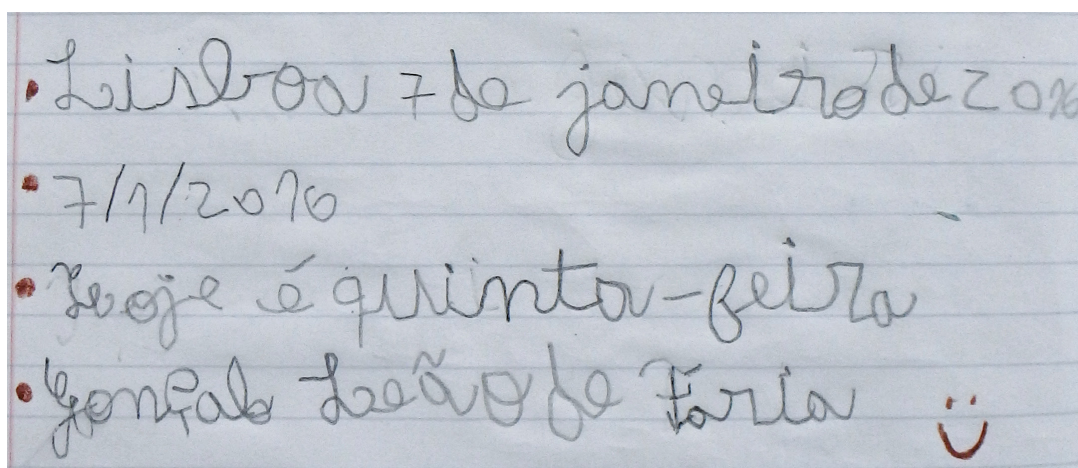 Lisboa 7 de janeiro de 2010
7/1/2010
Hoje é quinta-feira
Gonçalo Leão de Faria